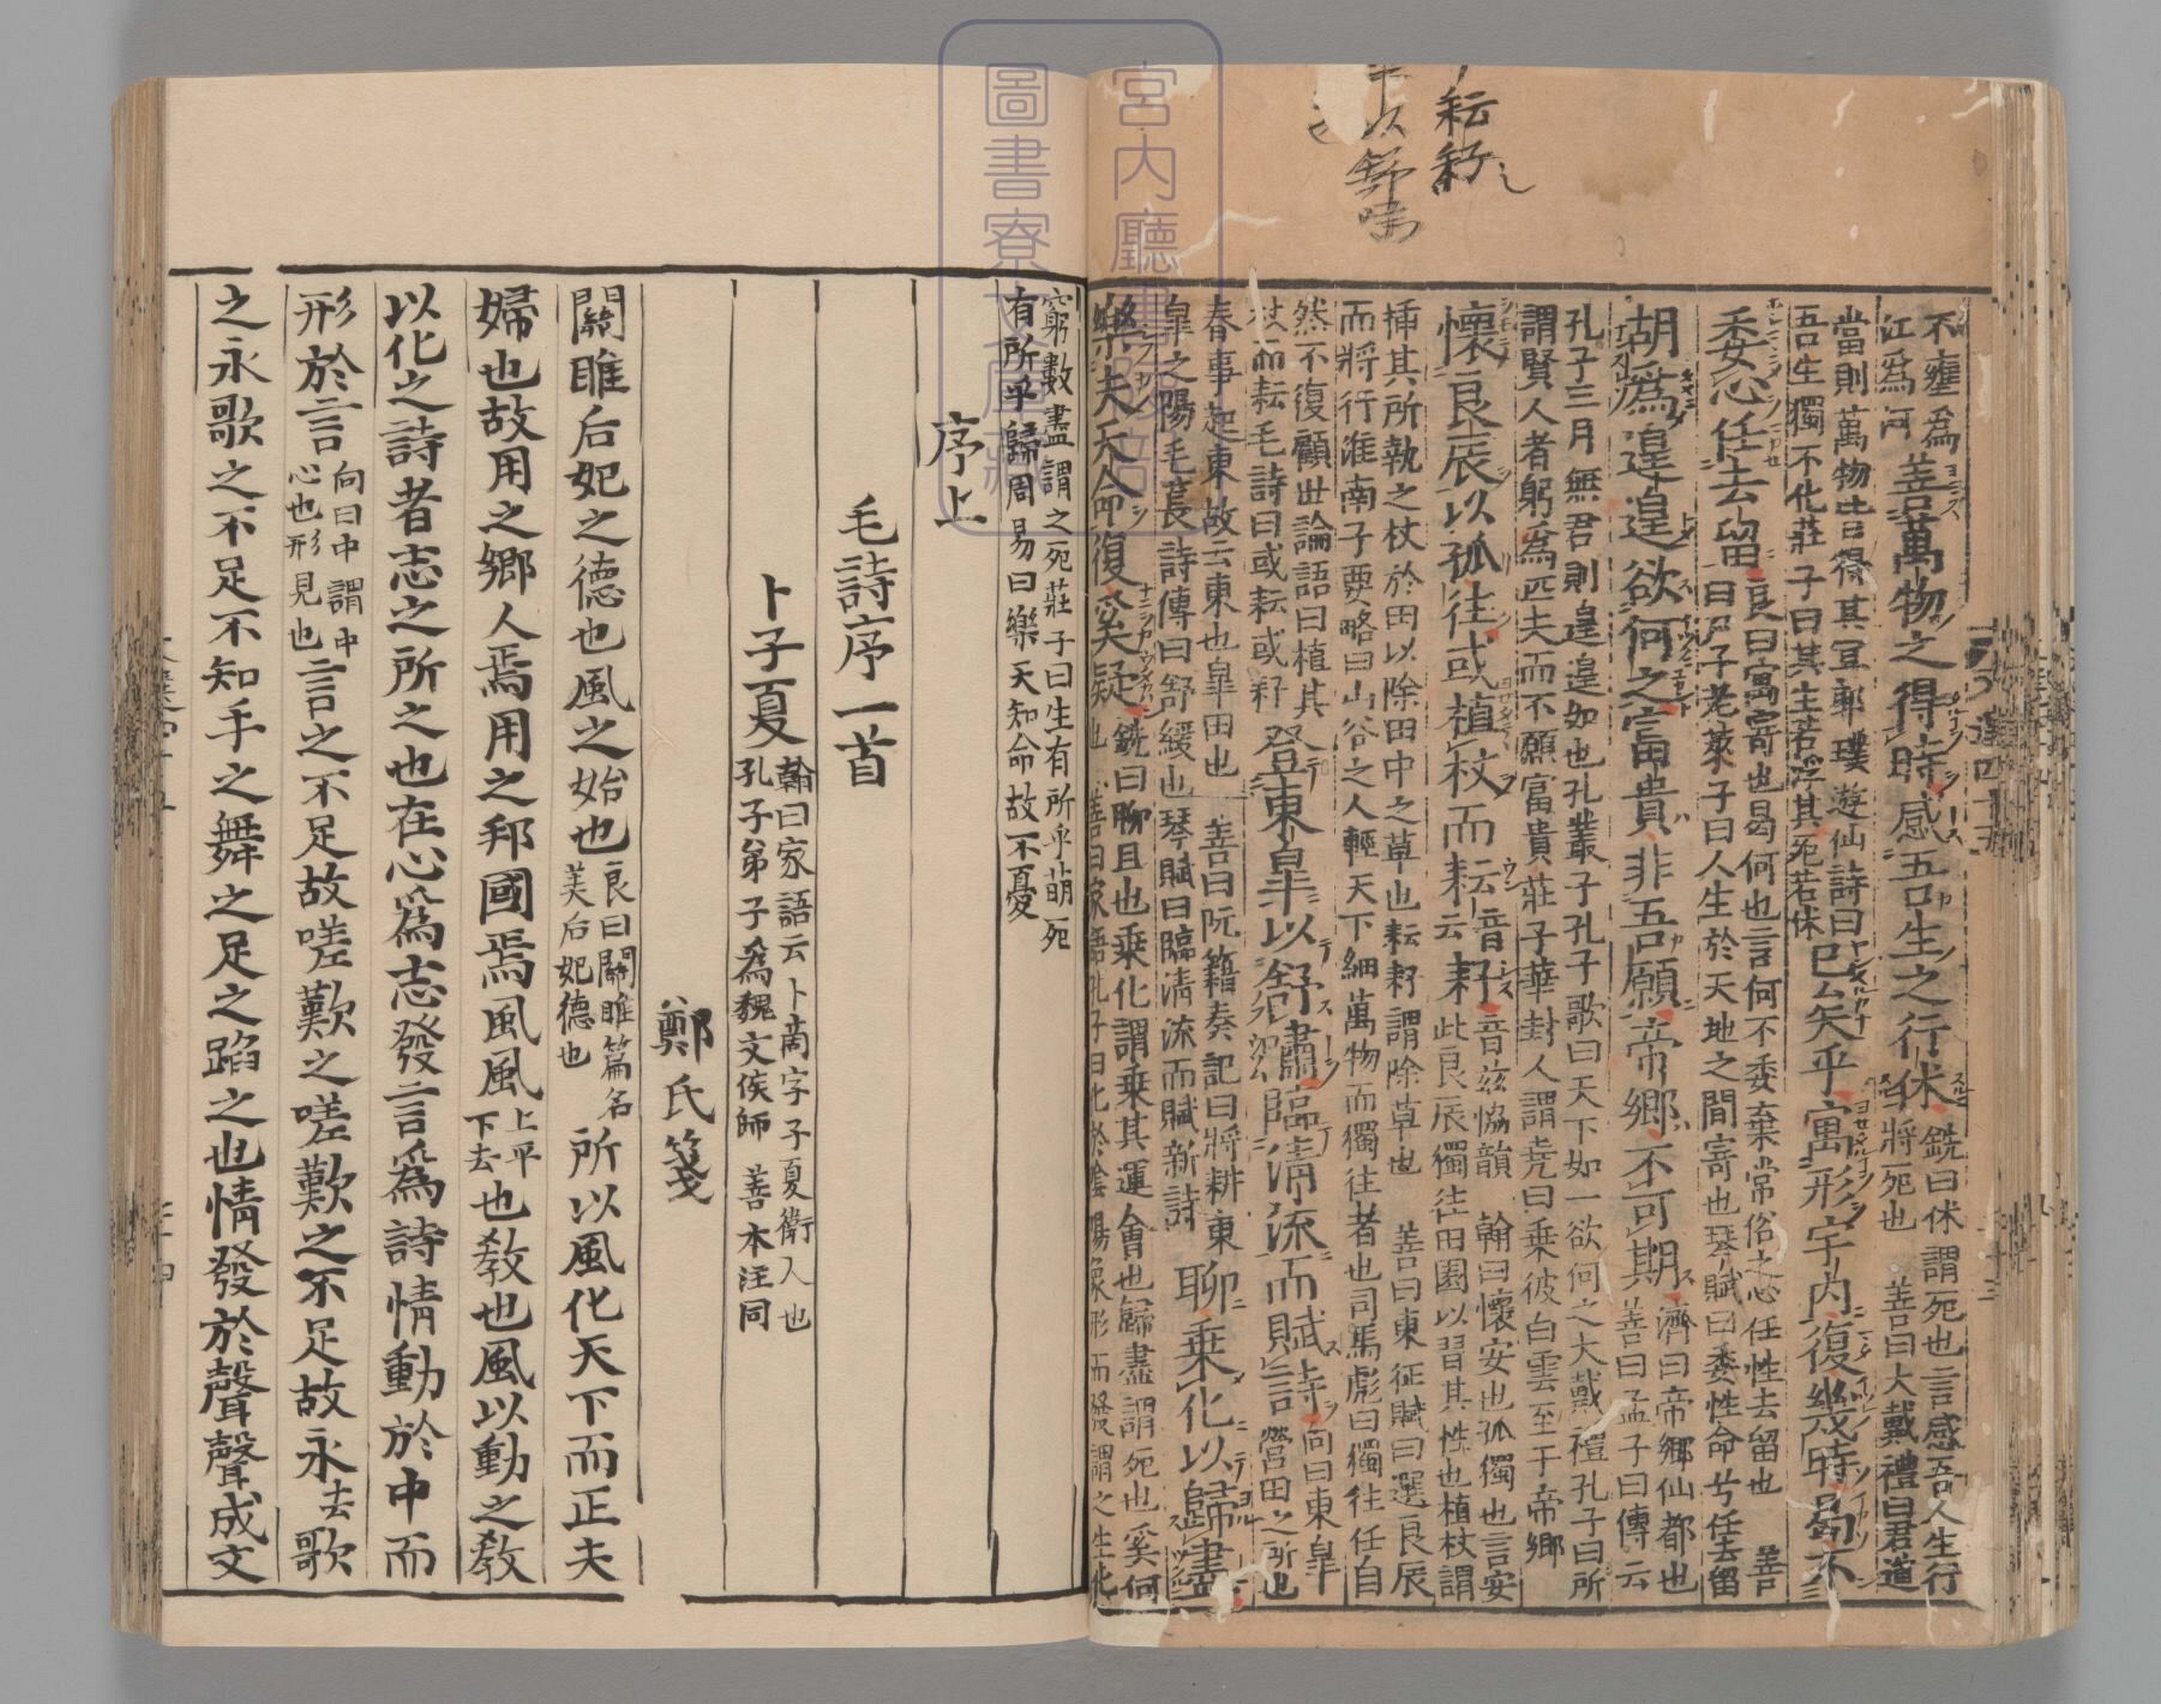 耘耔
以舒嘯
不壅爲
江爲河
善萬物之得時感吾生之行休
銑曰休謂死也言感吾人生行
將死也 善曰大戴禮曰君道
當則萬物皆得其宜郭璞遊仙詩曰
吾生獨不化莊子曰其生若浮其死若休
已矣乎寓形宇内復幾時曷不
委心任去留
良曰寓寄也曷何也言何不委棄常俗之心任性去留也 善
曰尸子老萊子曰人生於天地之間寄也琴賦曰委性命兮任去留
胡爲遑遑欲何之富貴非吾願帝鄉不可期
濟曰帝鄉仙都也
善曰孟子曰傳云
孔子三月無君則遑遑如也孔叢子孔子歌曰天下如一欲何之大戴禮孔子曰所
謂賢人者躬爲匹夫而不願富貴莊子華封人謂堯曰乗彼白雲至于帝鄉
懷良辰以孤往或植杖而耘音云耔
音兹協韻 翰曰懷安也孤獨也言安
此良辰獨往田園以習其性也植杖謂
挿其所執之杖於田以除田中之草也耘耔謂除草也 善曰東征賦曰選良辰
而將行淮南子要略曰山谷之人輕天下細萬物而獨往者也司馬彪曰獨往任自
然不復顧世論語曰植其
杖而耘毛詩曰或耘或耔
登東皐以舒嘯臨清流而賦詩
向曰東皐
營田之所也
春事起東故云東也皐田也 善曰阮籍奏記曰將耕東
皐之陽毛萇詩傳曰舒緩也琴賦曰臨清流而賦新詩
聊乗化以歸盡
樂夫天命復奚疑
銑曰聊且也乗化謂乗其運會也歸盡謂死也奚何
也 善曰家語孔子曰化於陰陽象形而發謂之生化
窮數盡謂之死莊子曰生有所乎萌死
有所乎歸周易曰樂天知命故不憂
序上
毛詩序一首
卜子夏
翰曰家語云卜商字子夏衛人也
孔子弟子爲魏文侯師 善本注同
鄭氏箋
關雎后妃之德也風之始也
良曰關雎篇名
美后妃德也
所以風化天下而正夫
婦也故用之鄉人焉用之邦國焉風風
上平
下去
也敎也風以動之敎
以化之詩者志之所之也在心爲志發言爲詩情動於中而
形於言
向曰中謂中
心也形見也
言之不足故嗟歎之嗟歎之不足故永去歌
之永歌之不足不知手之舞之足之蹈之也情發於聲聲成文
宮内廳
圖書寮文庫藏